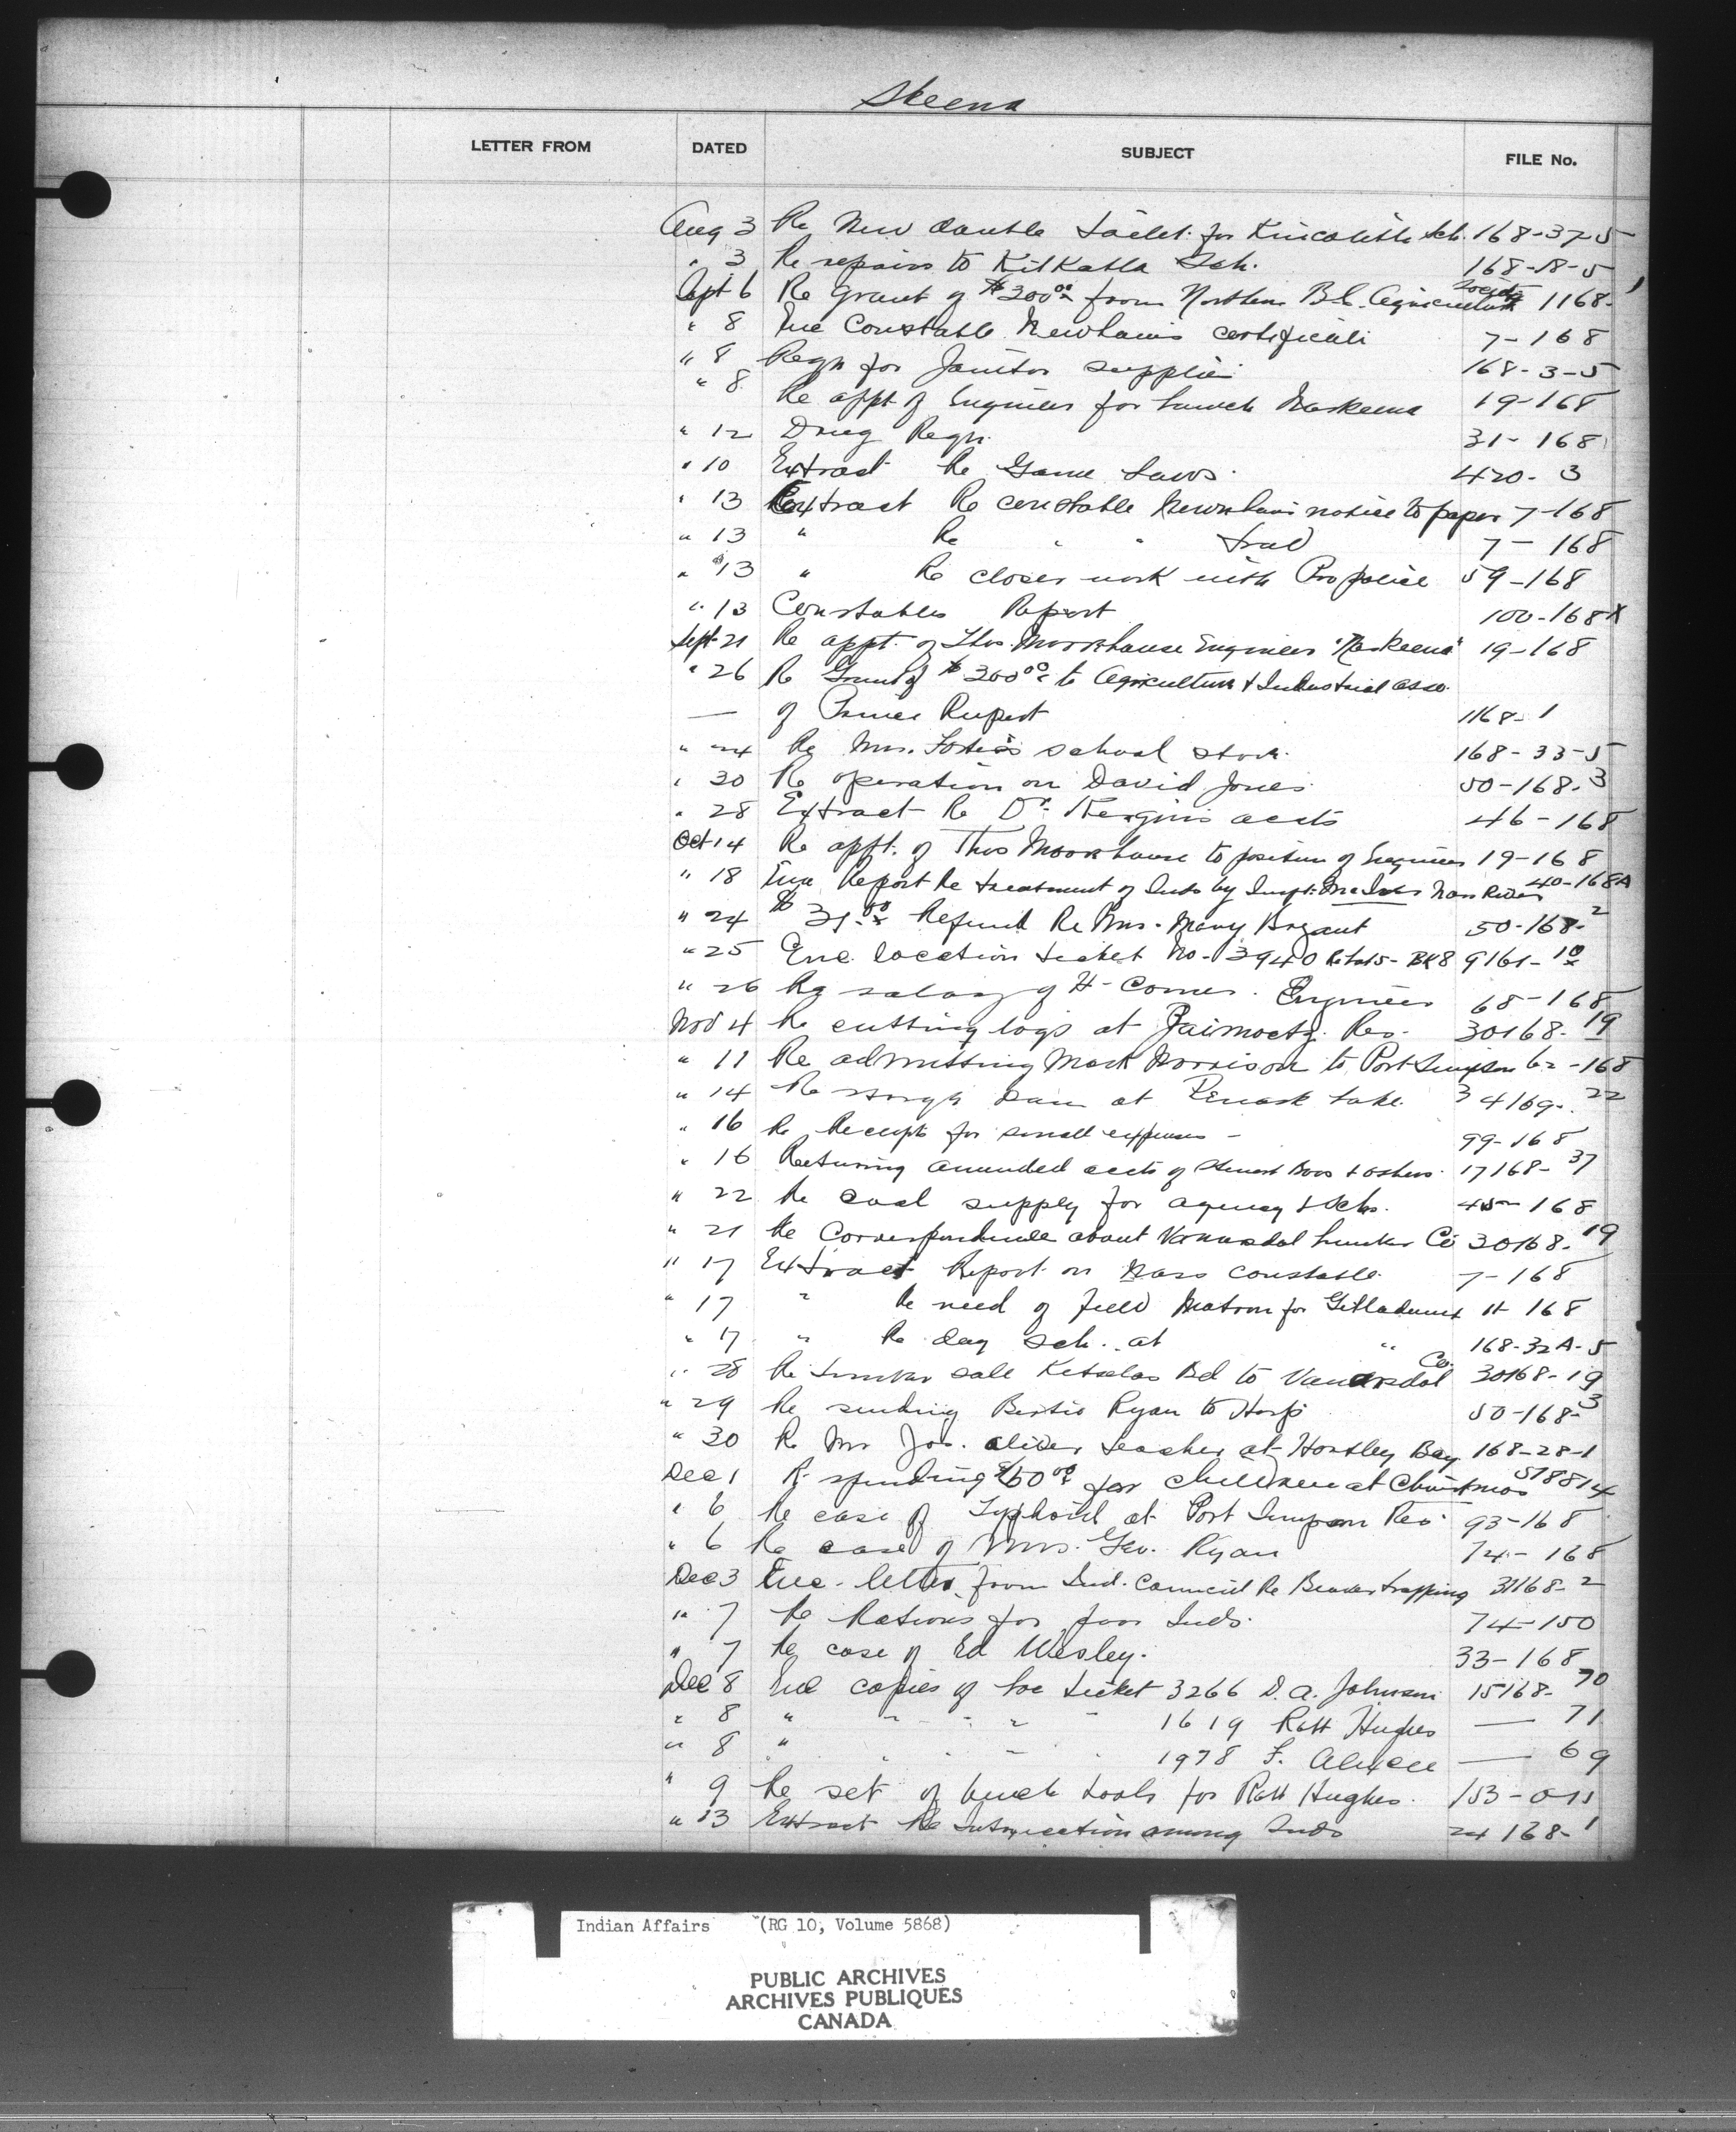 Skeena
LETTER FROM DATED SUBJECT FILE No.
Aug 3 Re New double toilet for Kincolith Sch. 168-37-5
" 3 Re repairs to Kitkatla Sch. 168-18-5
Sept 6 Re Grant of $300.00 from Northern B.C. Agricultural Society 1168-1
" 8 Enc Constable Newhams certificate 7-168
" 8 Reqn for Janitor supplies 168-3-5
" 8 Re appt of Engineer for launch Naskeena 19-168
" 12 Drug Reqn. 31-168
" 10 Extract Re Game Laws. 420-3
" 13 Extract Re constable Newnhams notice to paper 7-168
" 13 " Re " " 7-168
" 13 " Re closer work with Pro police 59-168
" 13 Constables Report 100-168X
Sept 21 Re appt. of Thos. Moorhouse Engineer "Naskeena" 19-168
" 26 Re Grant of $300.00 to Agriculture & Industrial Asso.
— of Prince Rupert 1168-1
" 24 Re Mrs. school stove. 168-33-5
" 30 Re operation on David Jones 50-168-3
" 28 Extract Re Dr. Kergin's accts 46-168
Oct 14 Re appt. of Thos Moorhouse to position of Engineer 19-168
" 18 Report Re treatment of Inds by Nass River 40-168A
" 24 $ Refund Re Mrs. Mary Bryant 50-168-2
" 25 Enc location ticket No. 3940 Re Lot 5- BK8 9161-10
" 26 Re salary of H. Comer. Engineer 68-168
Nov 4 Re cutting logs at Res. 30168-19
" 11 Re admitting Mark Morrison to Port Simpson 62-168
" 14 Re storage dam at Pennask Lake. 34169-22
" 16 Re Receipts for small expenses - 99-168
" 16 Returning amended accts of Stewart Bros & others. 17168-37
" 22 Re coal supply for agency & Schs. 45-168
" 21 Re Correspondence about Vanarsdol Lumber Co 30168-19
" 17 Extract Report on Nass constable. 7-168
" 17 " Re need of field Matron for Gitladamix 11-168
" 17 " Re day sch. at " 168-32A-5
" 28 Re timber sale Kitselas Bd to Vanarsdol Co. 30168-19
" 29 Re sending Bertie Ryan to Hosp 50-168-3
" 30 Re Mr Jos. Oliver teacher at Hartley Bay 168-28-1
Dec 1 Re spending $50.00 for children at Christmas 518814
" 6 Re case of Typhoid at Port Simpson Res. 93-168
" 6 Re case of Mrs. Geo. Ryan 74-168
Dec 3 Enc. letter from Ind. Council Re Beaver trapping 31168-2
" 7 Re Rations for poor Inds. 74-150
" 7 Re case of Ed Wesley. 33-168
Dec 8 Enc copies of Loc ticket 3266 D.A. Johnson 15168-70
" 8 " " " " " 1619 Robt Hughes — 71
" 8 " " " " " 1978 F. — 69
" 9 Re set of bench tools for Robt Hughes. 153-0-11
" 13 Extract Re Intoxication among Inds 24168-1
Indian Affairs (RG 10, Volume 5868)
PUBLIC ARCHIVES
ARCHIVES PUBLIQUES
CANADA